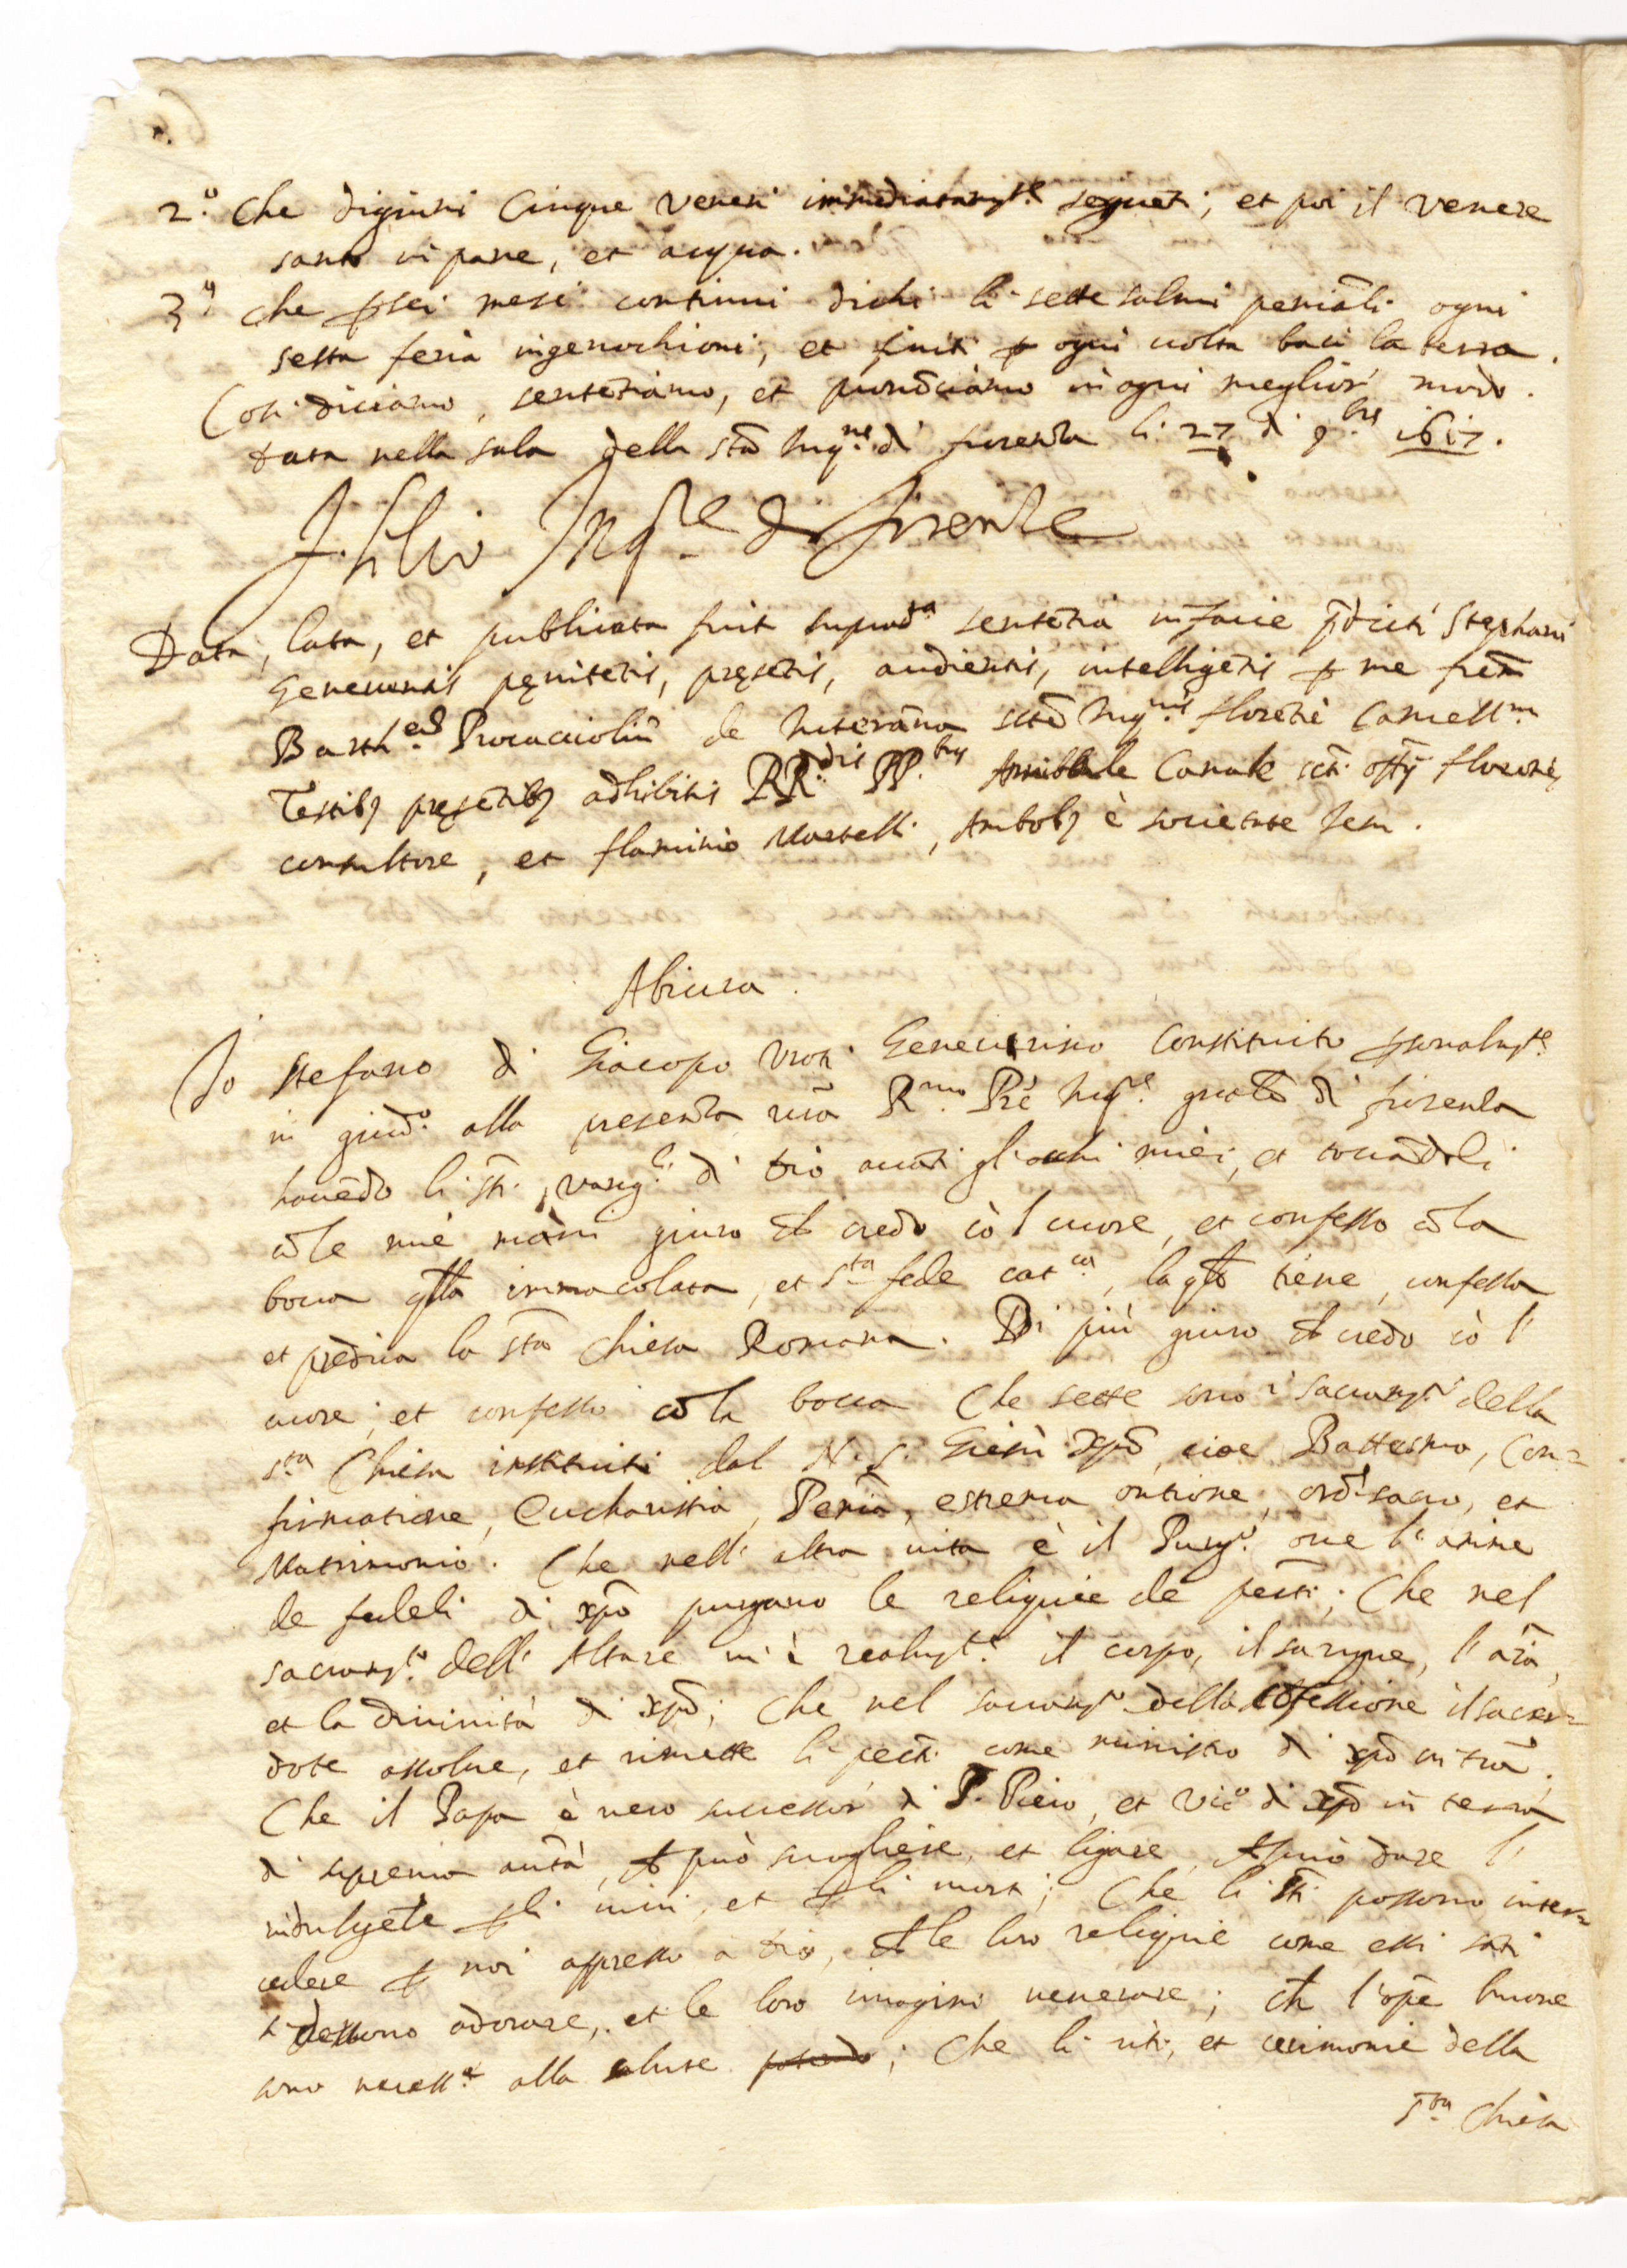 2.º Che digiuni Cinque Venerì immediatamte segueti; et poi il Venere
santo in pane, et acqua.
3º Che p sei mesi continui dichi li sette salmi penitali ogni
sesta feria ingenochioni, et finiti p ogni volta baci la terra.
Cosi diciamo, sentetiamo, et pronūciamo in ogni meglior modo.
data nella sala della stā Inqne di fiorenza li 27 di 9bre 1617.
Inqre di fiorenze
Data, lata, et publicata fuit supradta sentētia in facie pdicti Stephani
Genevensis pęnitētis, pręsētis, audientis, intelligētis p me frēm
Bartheū Procacciolū de Interāna sctę Inqnis florētię Cancellm
Testibȝ pręsētibȝ adhibitis RR.dis PP.bus Annibbale Canale scti offȳ florētię
consultore, et flaminio Martelli, Ambobȝ è societate Jesu.
Abiura.
Io Stefano di Giacopo Geneverino Constituito psonalmte
in giudo alla presenza vrā Rmo Pre Inqre grāle di fiorenza
havēdo li sti vangli di Dio avāti gli occhi miei, et tocādoli
cō le mie mani giuro ch credo cò l cuore, et confesso cō la
bocca qlla immacolata, et sta fede catca, la qle tiene, confessa
et prēdica la stā Chiesa Romana. Di più giuro ch credo cò l
cuore, et confesso cō la bocca Che sette sono i sacramti della
sta Chiesa instituiti dal N. S. Giesù Xpō, cioe Battesmo, Con=
firmatione, Eucharistia, Penia, estrema ontione, ord. sacro, et
Matrimonio. Che nell' altra vita è il Purgo ove l'anime
de fedeli di Xpō purgano le reliquie de pecti; Che nel
sacramto dell' Altare vi è realmte il corpo, il sangue, l'aīa,
et la divinità di Xpō; Che nel sacramto della cōfessione il sacer=
dote assolve, et rimette li pecti come ministro di Xpō in trā.
Che il Papa è vero successor di S. Piero, et Vico di Xpō in terra
di suprema autà, ch può sciogliere, et ligare, ch può dare l'
indulgēte p li vivi, et p li morti; Che li sti possono inter=
cedere p noi appresso a Dio, ch le loro reliquie come essi sāti
si devono adorare, et le loro imagini venerare; ch l'ope buone
sono necesse alla salute; Che li riti, et cerimonie della
sta Chiesa